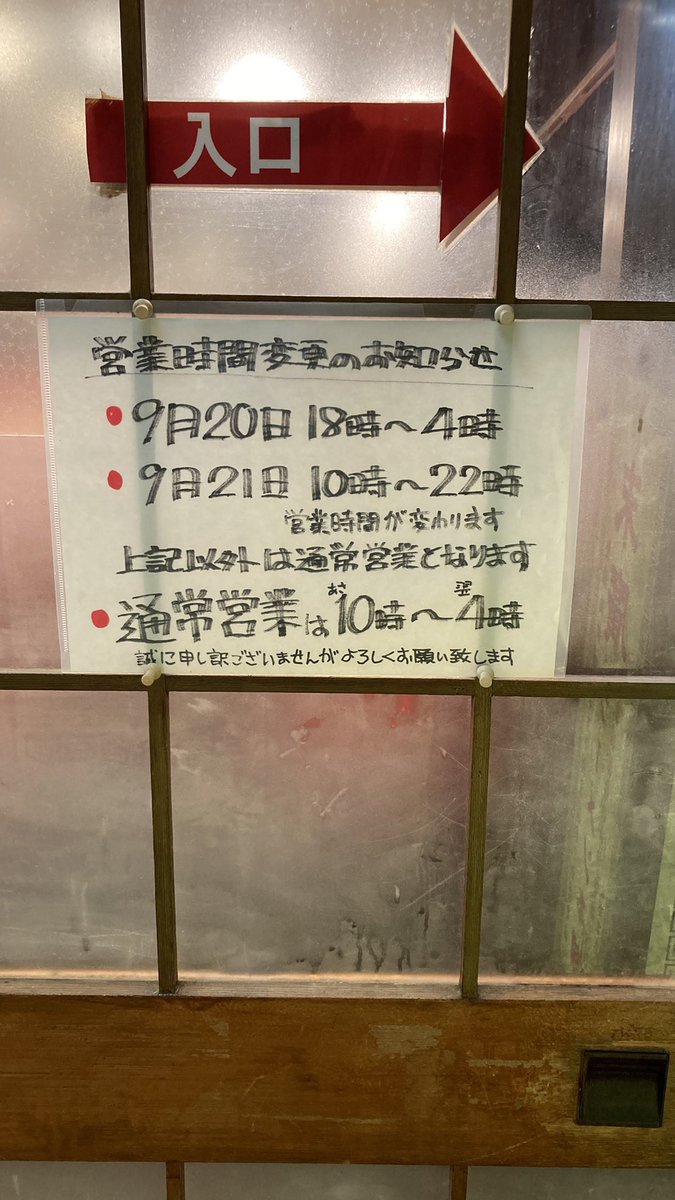 入口
営業時間変更のお知らせ
● 9月20日 18時〜4時
● 9月21日 10時〜22時
営業時間が変わります
上記以外は通常営業となります
● 通常営業はあさ10時〜翌4時
誠に申し訳ございませんがよろしくお願い致します